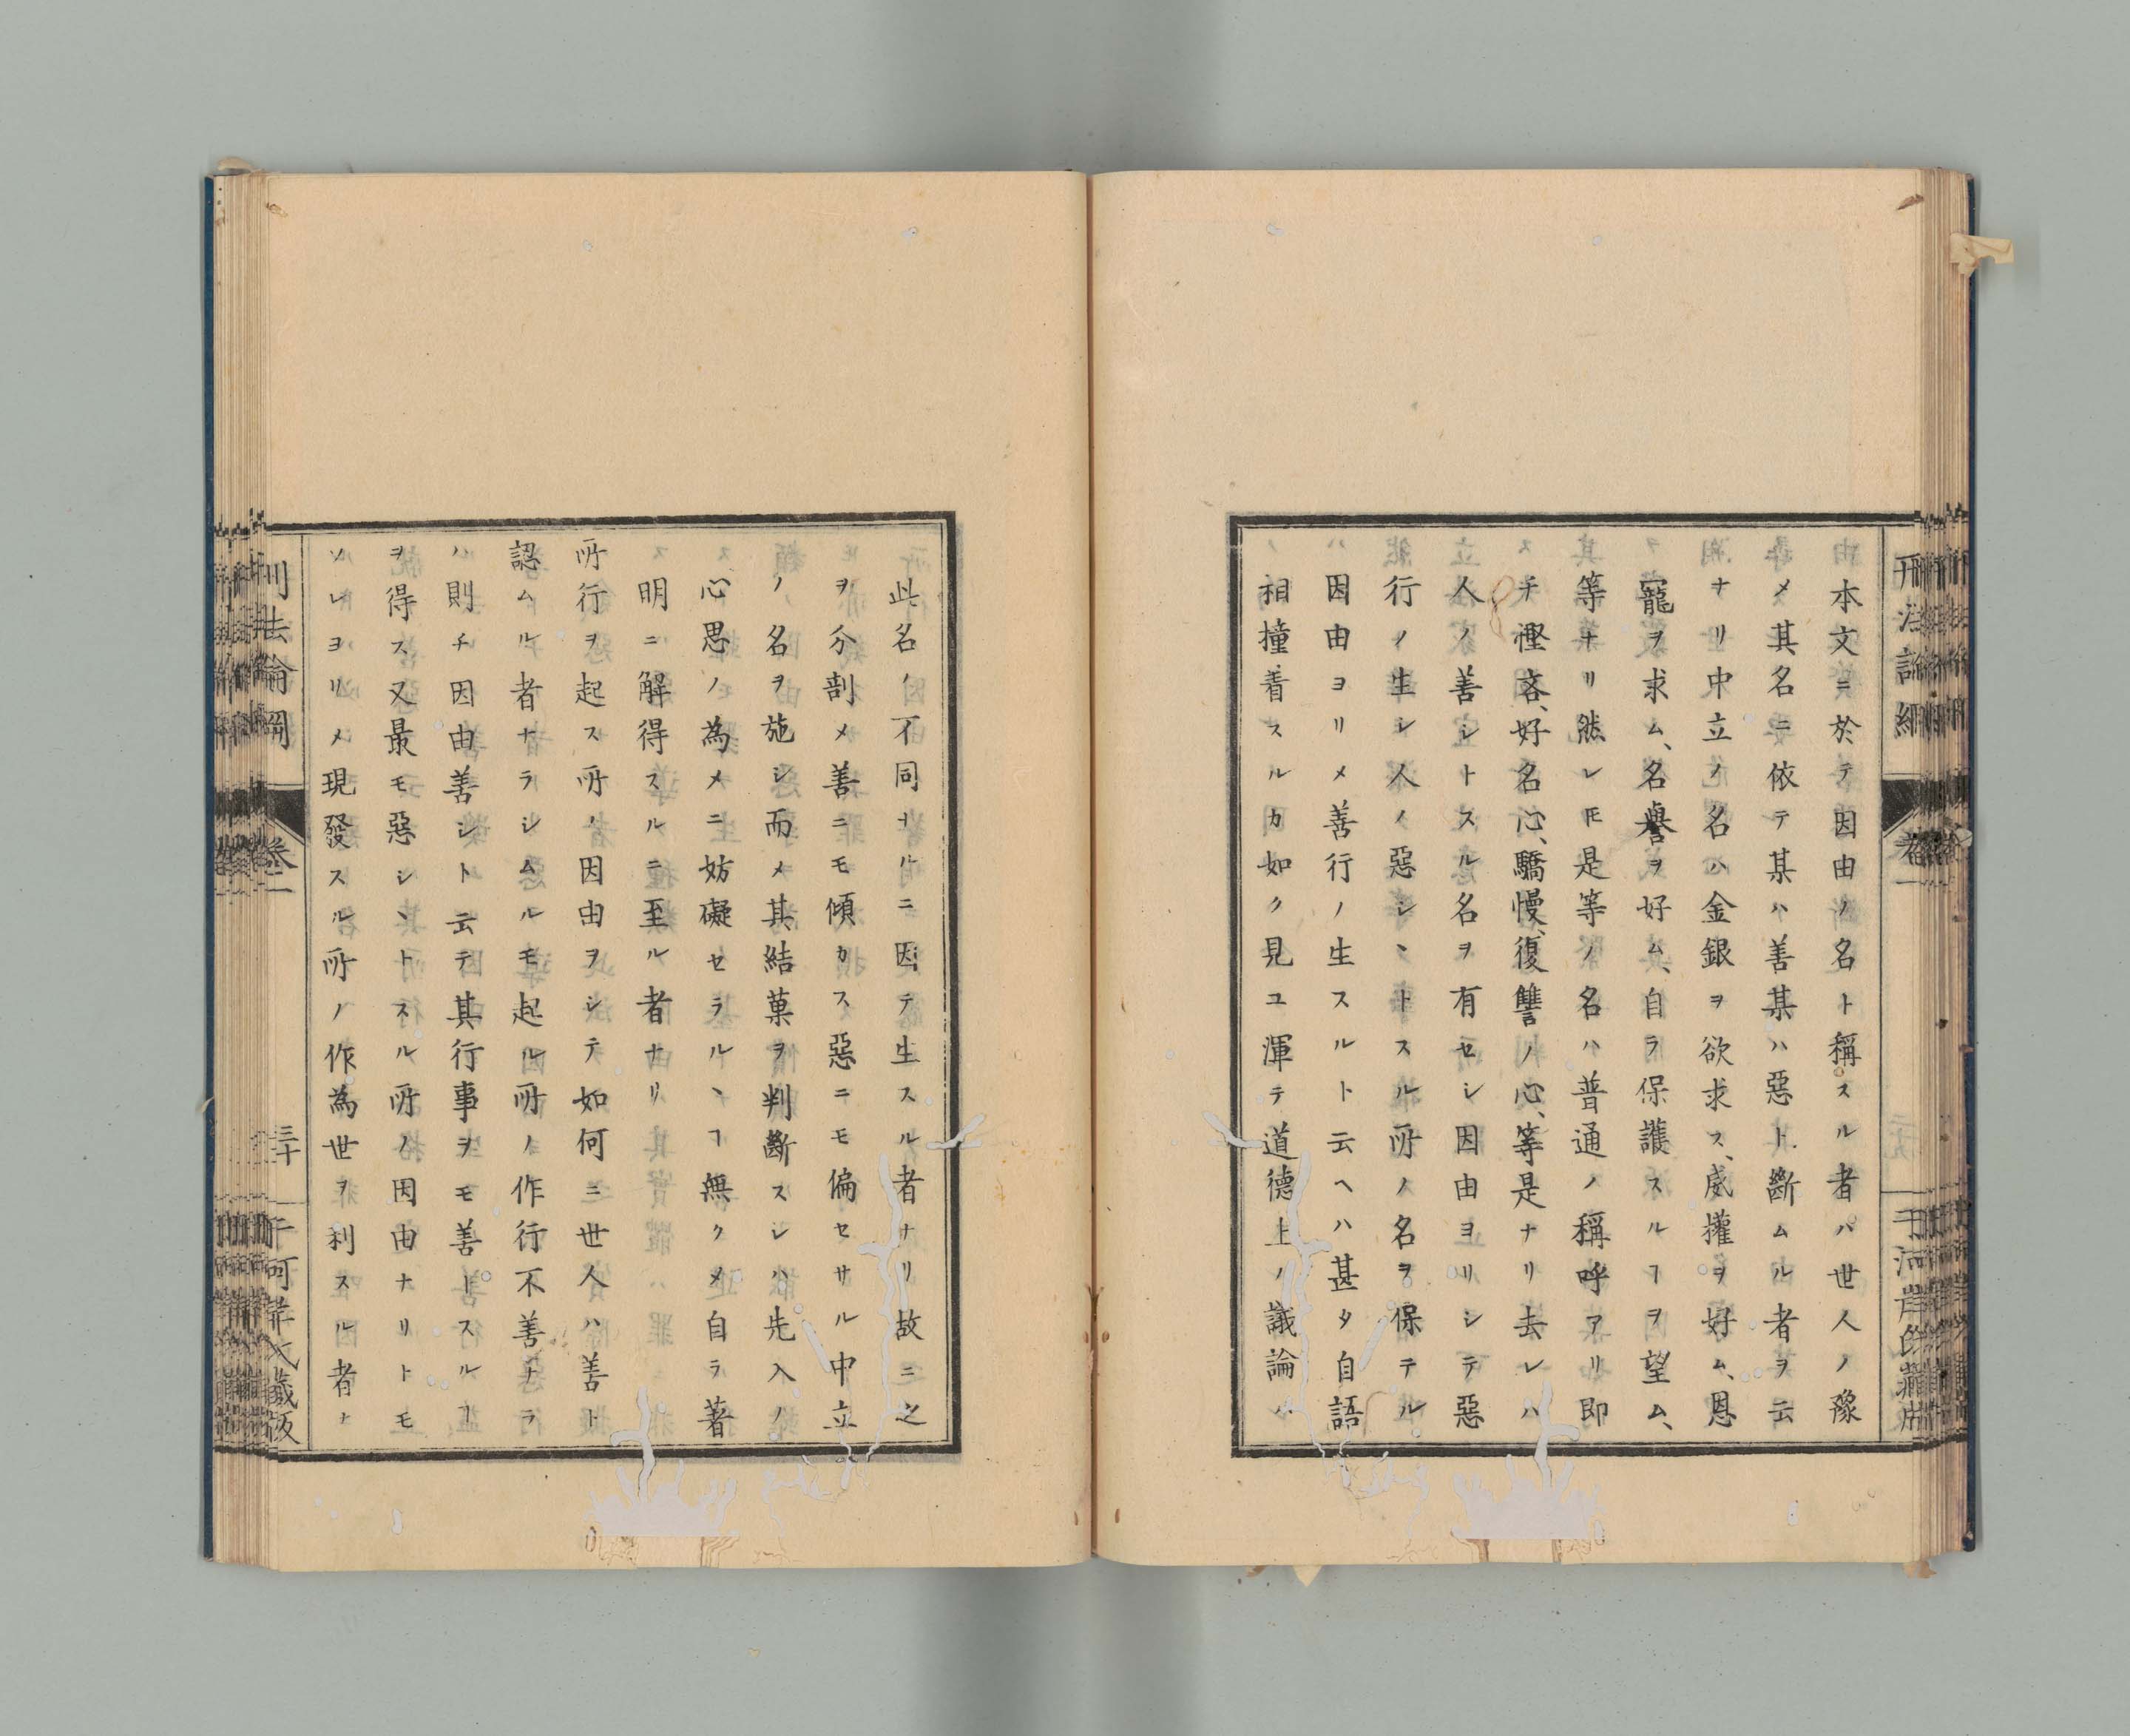 本文ニ於テ因由ノ名ト稱スル者ハ世人ノ豫
メ其名ニ依テ某ハ善某ハ惡ト斷ムル者ヲ云
ナリ中立ノ名ハ金銀ヲ欲求ス、威權ヲ好ム、恩
寵ヲ求ム、名譽ヲ好ム、自ラ保護スルヿヲ望ム、
等ナリ然レ𪜈是等ノ名ハ普通ノ稱呼アリ即
チ慳吝、好名心、驕慢、復讐ノ心、等是ナリ去レハ
人ノ善シトスル名ヲ有セシ因由ヨリシテ惡
行ノ生シ人ノ惡シヽトスル所ノ名ヲ保テル
因由ヨリメ善行ノ生スルト云ヘハ甚タ自語
相撞着スルカ如ク見ユ渾テ道德上ノ議論ハ
此名ノ不同ナルニ因テ生スル者ナリ故ニ之
ヲ分剖メ善ニモ傾カス惡ニモ偏セサル中立
ノ名ヲ施シ而メ其結菓ヲ判斷スレハ先入ノ
心思ノ為メニ妨礙セラルヽヿ無クメ自ラ著
明ニ解得スルニ至ル者ナリ
所行ヲ起ス所ノ因由ヲシテ如何ニ世人ハ善ト
認ムル者ナラシムルモ起ル所ノ作行不善ナラ
ハ則チ因由善シト云テ其行事ヲモ善トスルヿ
ヲ得ス又最モ惡シヽトスル所ノ因由ナリトモ
ソレヨリメ現發スル所ノ作為世ヲ利スル者ト
刑法論綱
卷一
三十